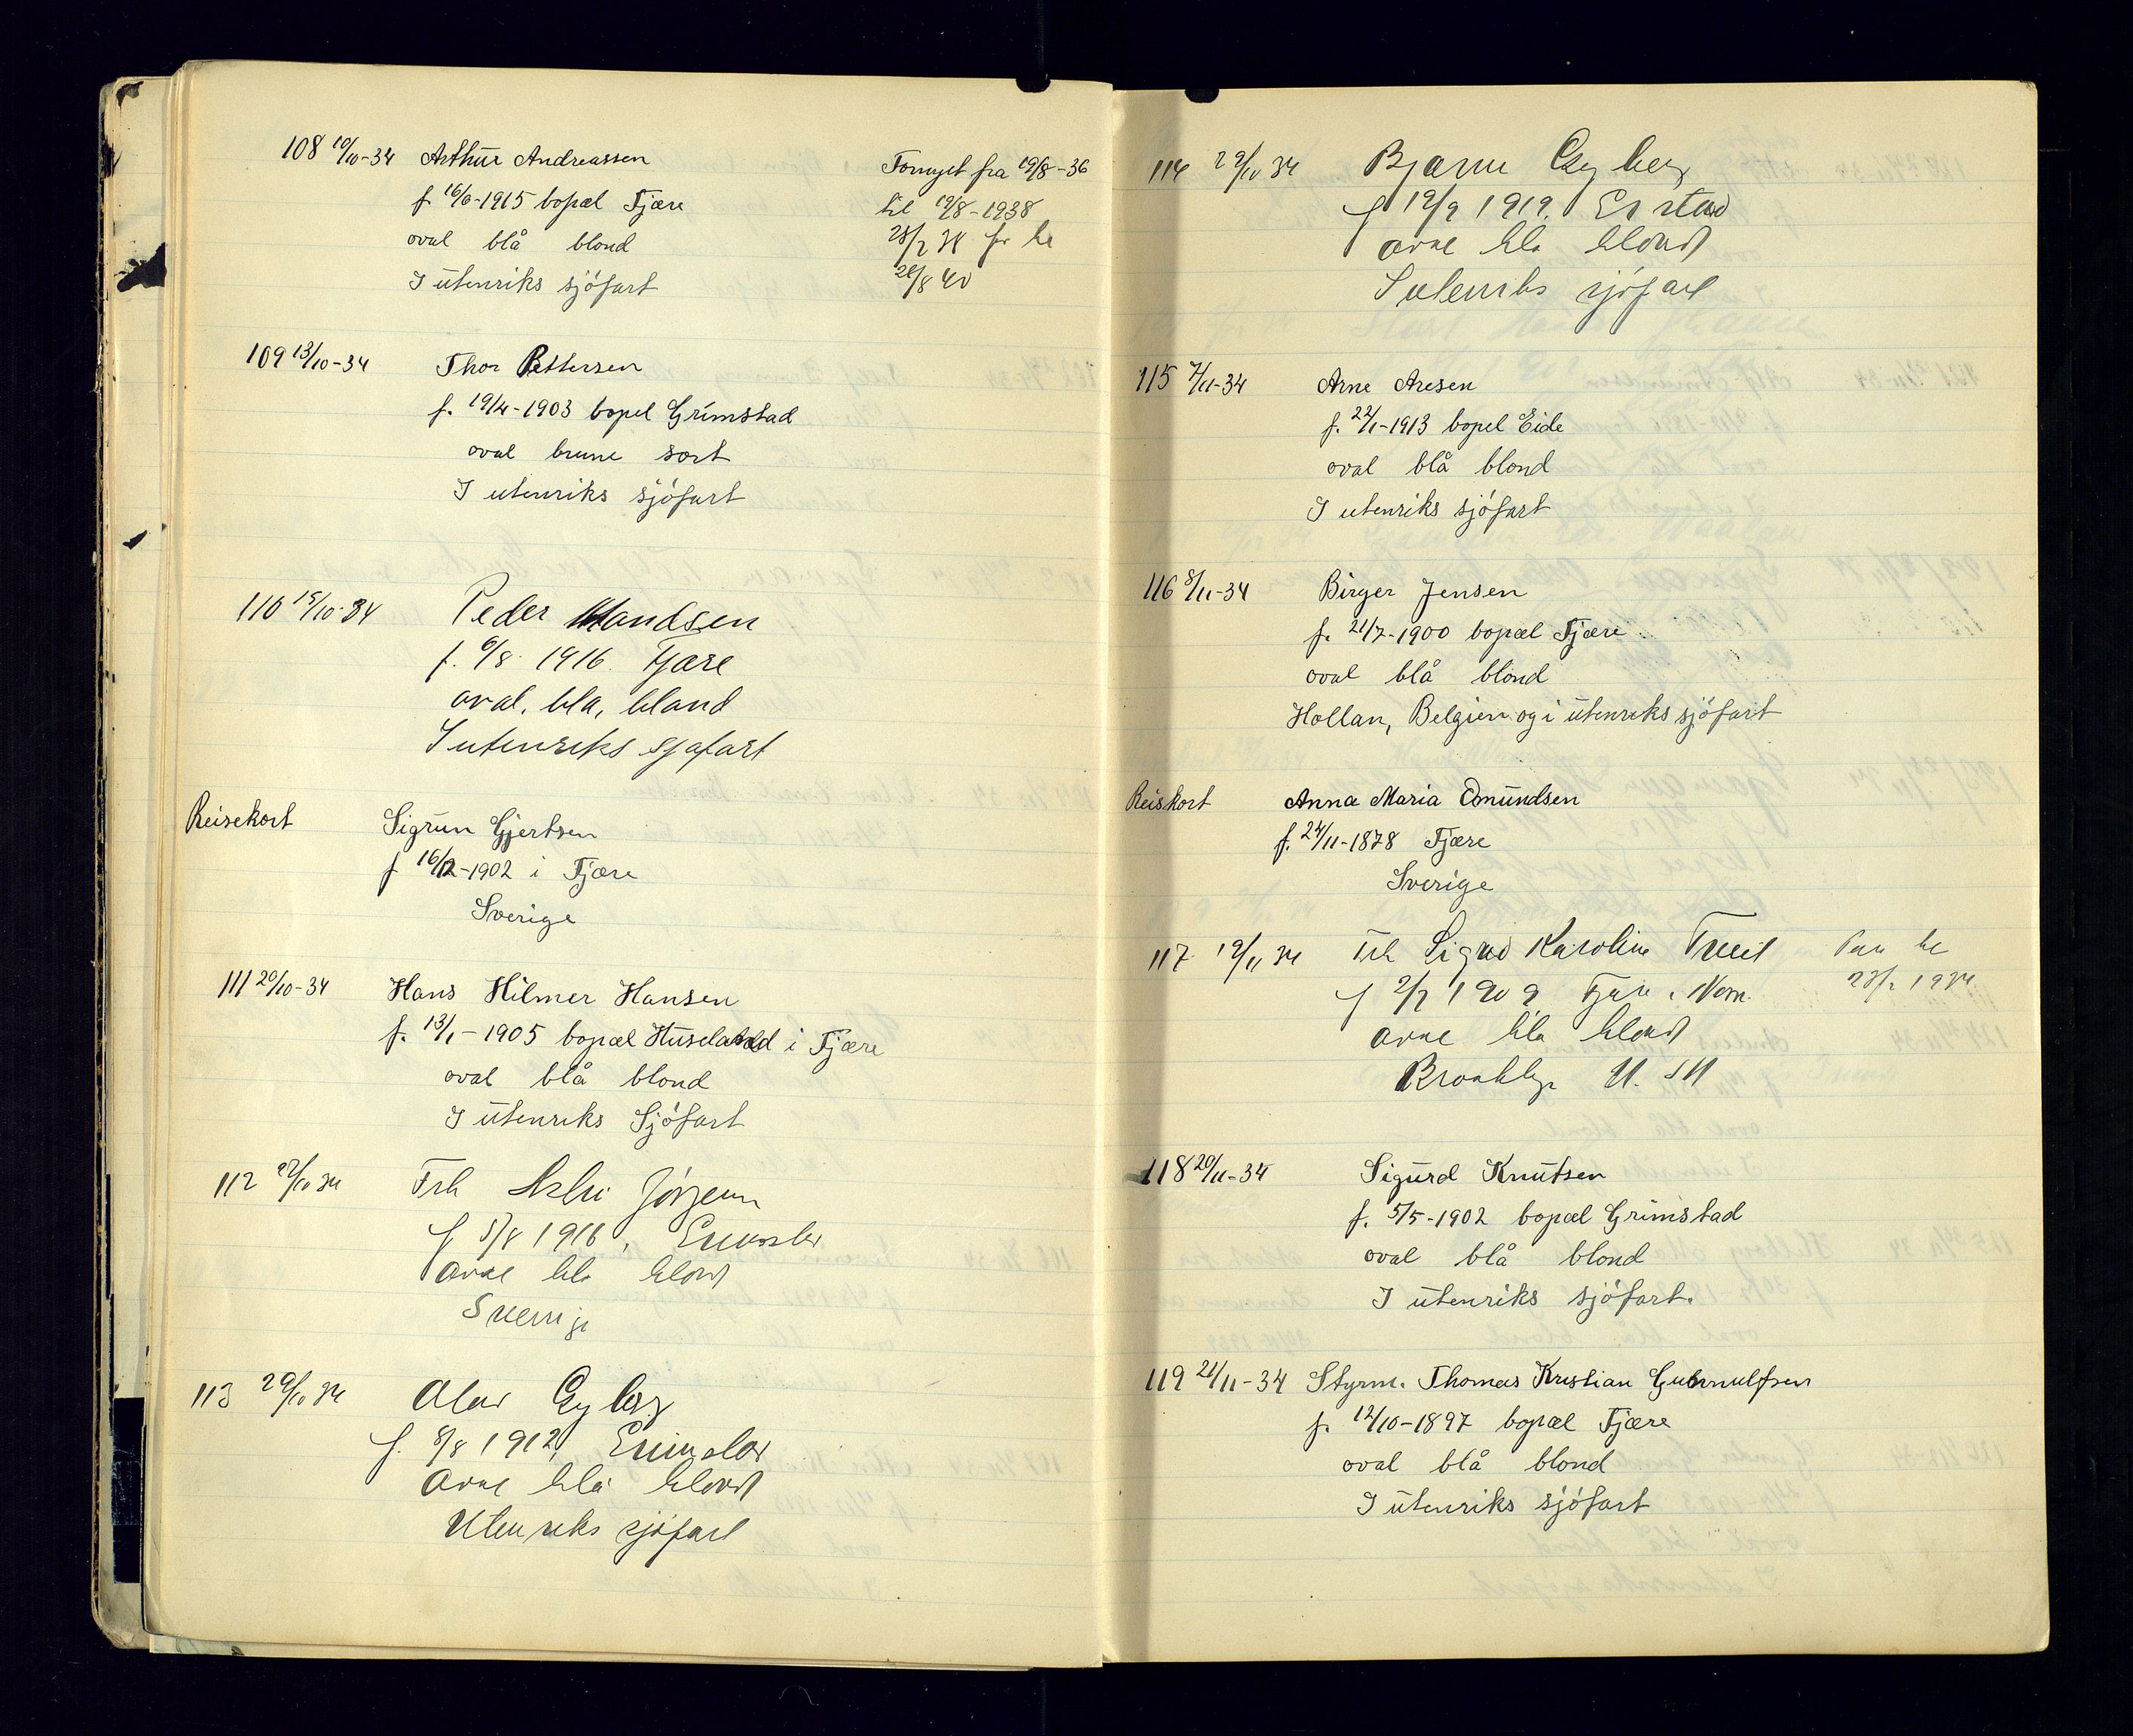 108 10/10-34 Arthur Andreassen
f. 16/6-1915 bopæl Fjære
oval blå blond
I utenriks sjöfart
Fornyet fra 19/8-36
til 19/8-1938
fra
til
109 13/10-34 Thor Pettersen
f. 19/4-1903 bopel Grimstad
oval brune sort
I utenriks sjöfart
110 15/10-34 Peder
f. 6/8 1916. Fjære
oval, bla, blond
I utenriks sjøfart
Reisekort Sigrun Gjertsen
f 16/12-1902 i Fjære
Sverige
111 20/10-34 Hans Hilmer Hansen
f. 13/1-1905 bopæl i Fjære
oval blå blond
I utenriks Sjöfart
112 34 Frk
f 1916, Grimstad
oval blå blond
Sverrige
113 29/10 34 Olav
f. 8/8 1912, Grimstad
oval blå blond
Utenriks sjöfart
114 29/10 34 Bjarne
f 19/9 1919.
oval bla blond
I utenriks sjöfart
115 7/11-34 Arne Aresen
f. 22/1-1913 bopel Eide
oval blå blond
I utenriks sjöfart
116 8/11-34 Birger Jensen
f. 21/7-1900 bopæl Fjære
oval blå blond
Hollan, Belgien og i utenreks sjöfart
Reiskort Anna Maria Omundsen
f. 24/11-1878 Fjære
Sverige
117 19/11 34 Frk Karoline
f 1909 Fjære
oval bla blond
Brooklyn U.SA
118 20/11-34 Sigurd Knutsen
f. 5/5-1902 bopæl Grimstad
oval blå blond
I utenriks sjöfart.
119 21/11-34 Styrm. Thomas Kristian
f. 12/10-1897 bopæl Fjære
oval blå blond
I utenriks sjöfart